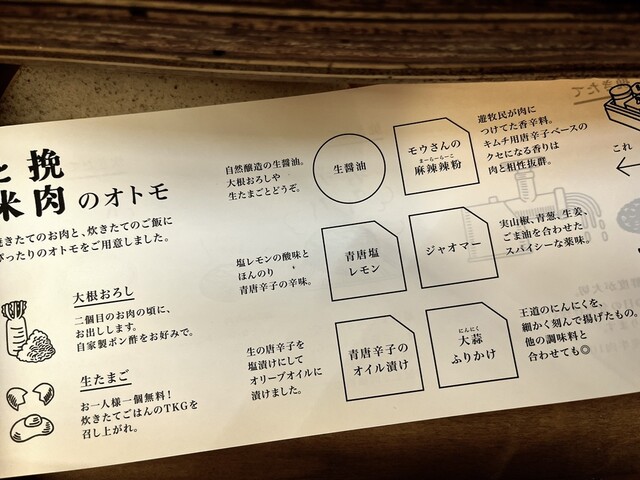 と挽
米肉のオトモ
焼きたてのお肉と、炊きたてのご飯に
ぴったりのオトモをご用意しました。
大根おろし
二個目のお肉の頃に、
お出しします。
自家製ポン酢をお好みで。
生たまご
お一人様一個無料！
炊きたてごはんのTKGを
召し上がれ。
自然醸造の生醤油。
大根おろしや
生たまごとどうぞ。
生醤油
モウさんの
まーらーらーこ
麻辣辣粉
遊牧民が肉に
つけてた香辛料。
キムチ用唐辛子ベースの
クセになる香りは
肉と相性抜群。
塩レモンの酸味と
ほんのり
青唐辛子の辛味。
青唐塩
レモン
ジャオマー
実山椒、青葱、生姜、
ごま油を合わせた
スパイシーな薬味。
生の唐辛子を
塩漬けにして
オリーブオイルに
漬けました。
青唐辛子の
オイル漬け
にんにく
大蒜
ふりかけ
王道のにんにくを、
細かく刻んで揚げたもの。
他の調味料と
合わせても◎
これ